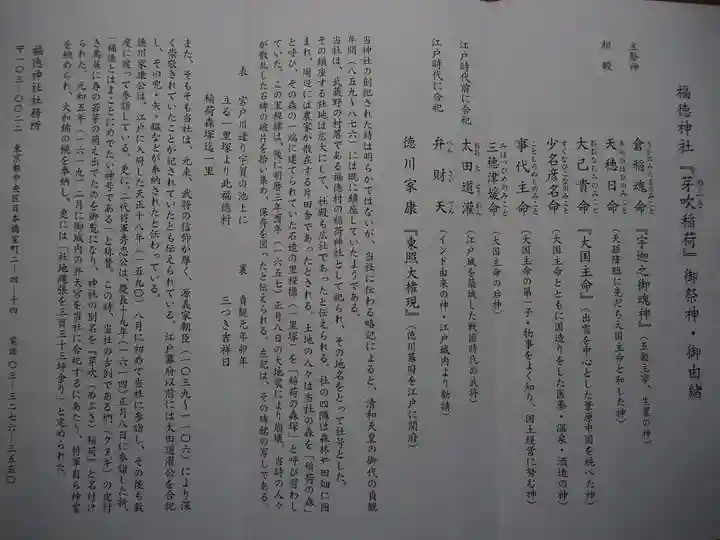 福徳神社『芽吹稲荷』御祭神・御由緒
めぶき
主祭神
倉稲魂命
うかのみたまのみこと
『宇迦之御魂神』(五穀主宰、生業の神)
相殿
天穂日命
あめのほひのみこと
(天孫降臨に先だち大国主命と和した神)
大己貴命
おおなむちのみこと
『大国主命』(出雲を中心とした葦原中国を統べた神)
少名彦名命
すくなひこなのみこと
(大国主命とともに国造りをした医薬・温泉・酒造の神)
事代主命
ことしろぬしのみこと
(大国主命の第一子・物事をよく知り、国土経営に務む神)
三穂津媛命
みほつひめのみこと
(大国主命の后神)
江戸時代前に合祀
太田道灌
おおたどうかん
(江戸城を築城した戦国時代の武将)
江戸時代に合祀
弁財天
べんざいてん
(インド由来の神・江戸城内より勧請)
徳川家康『東照大権現』(徳川幕府を江戸に開府)
当神社の創祀された時は明らかではないが、当社に伝わる略記によると、清和天皇の御代の貞観
年間(八五九~八七六)には既に鎮座していたようである。
当社は、武蔵野の村落である福徳村の稲荷神社として祀られ、その地名をとって社号とした。
その鎮座する社地は広大にして、社殿も広社であったと伝えられる。社の四隣は森林や田畑に囲
まれ、周辺には農家が散在する片田舎であったとされる。土地の人々は当社の森を「稲荷の森」
と呼び、その森の一端に建てられていた石造の里程標(一里塚)を「稲荷の森塚」と呼び習わし
ていた。この里程標は、後に明暦三年酉年(一六五七)正月八日の大地震により崩壊。当時の人々
が散乱した碑の破片を拾い集め、保存を図ったと伝えられる。左記は、その碑銘の写しである。
表 宮戸川辺り宇賀の池上に
立る一里塚より此福徳村
稲荷森塚迄一里
裏 貞観元年卯年
三つき吉祥日
また、そもそも当社は、元来、武将の信仰が厚く、源義家朝臣(一〇三九~一一〇六)により深
く崇敬されていたことが記されていたとも伝えられてる。江戸幕府以前には太田道灌公を合祀
し、その兜・矢・鏃などが奉納されていたと伝わっている。
徳川家康公は、江戸に入府した天正十八年(一五九〇)八月に初めて当社に参詣し、その後も数
度に渡って参詣している。更に、二代将軍秀忠公は慶長十九年(一六一四)正月八日に参詣した折、
「福徳とはまことにめでたい神号である」と称賛。この時、当社の古例である椚(クヌギ)の皮付
き鳥居に春の若芽の萌え出でたのを御覧になり、神社の別名を『芽吹(めぶき)稲荷』と名付け
られた。元和五年(一六一九)二月に御城内の弁天宮を当社に合祀するにあたり、将軍自ら神霊
を納められ、大和錦の幌を奉納し、更には「社地縄張を三百三十坪余り」と定められた。
福徳神社社務所
〒一〇三-〇〇二二 東京都中央区日本橋室町二-四-十四 電話〇三-三二七六-三五五〇